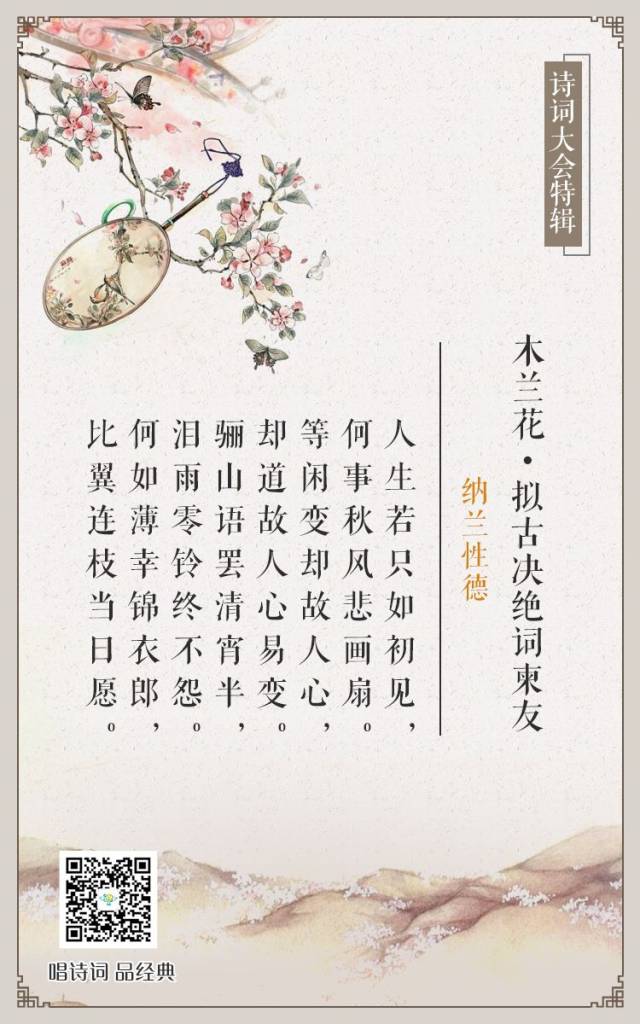 诗词大会特辑
木兰花·拟古决绝词柬友
纳兰性德
人生若只如初见，
何事秋风悲画扇。
等闲变却故人心，
却道故人心易变。
骊山语罢清宵半，
泪雨零铃终不怨。
何如薄幸锦衣郎，
比翼连枝当日愿。
唱诗词 品经典